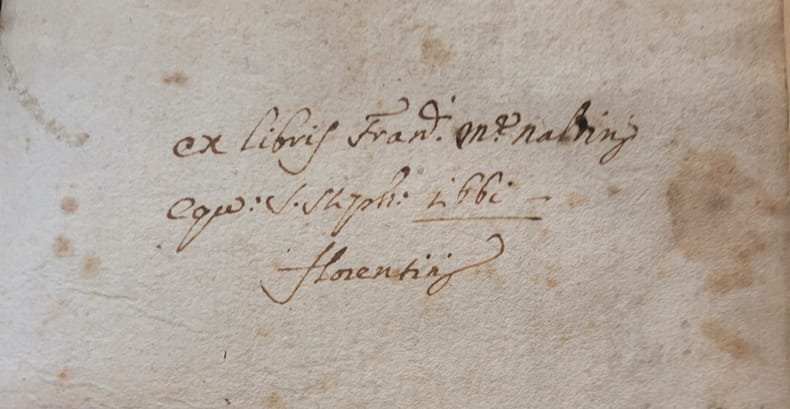 ex libris Fran.ci M.e naldinij
equi: S. Steph: 1661
florentini